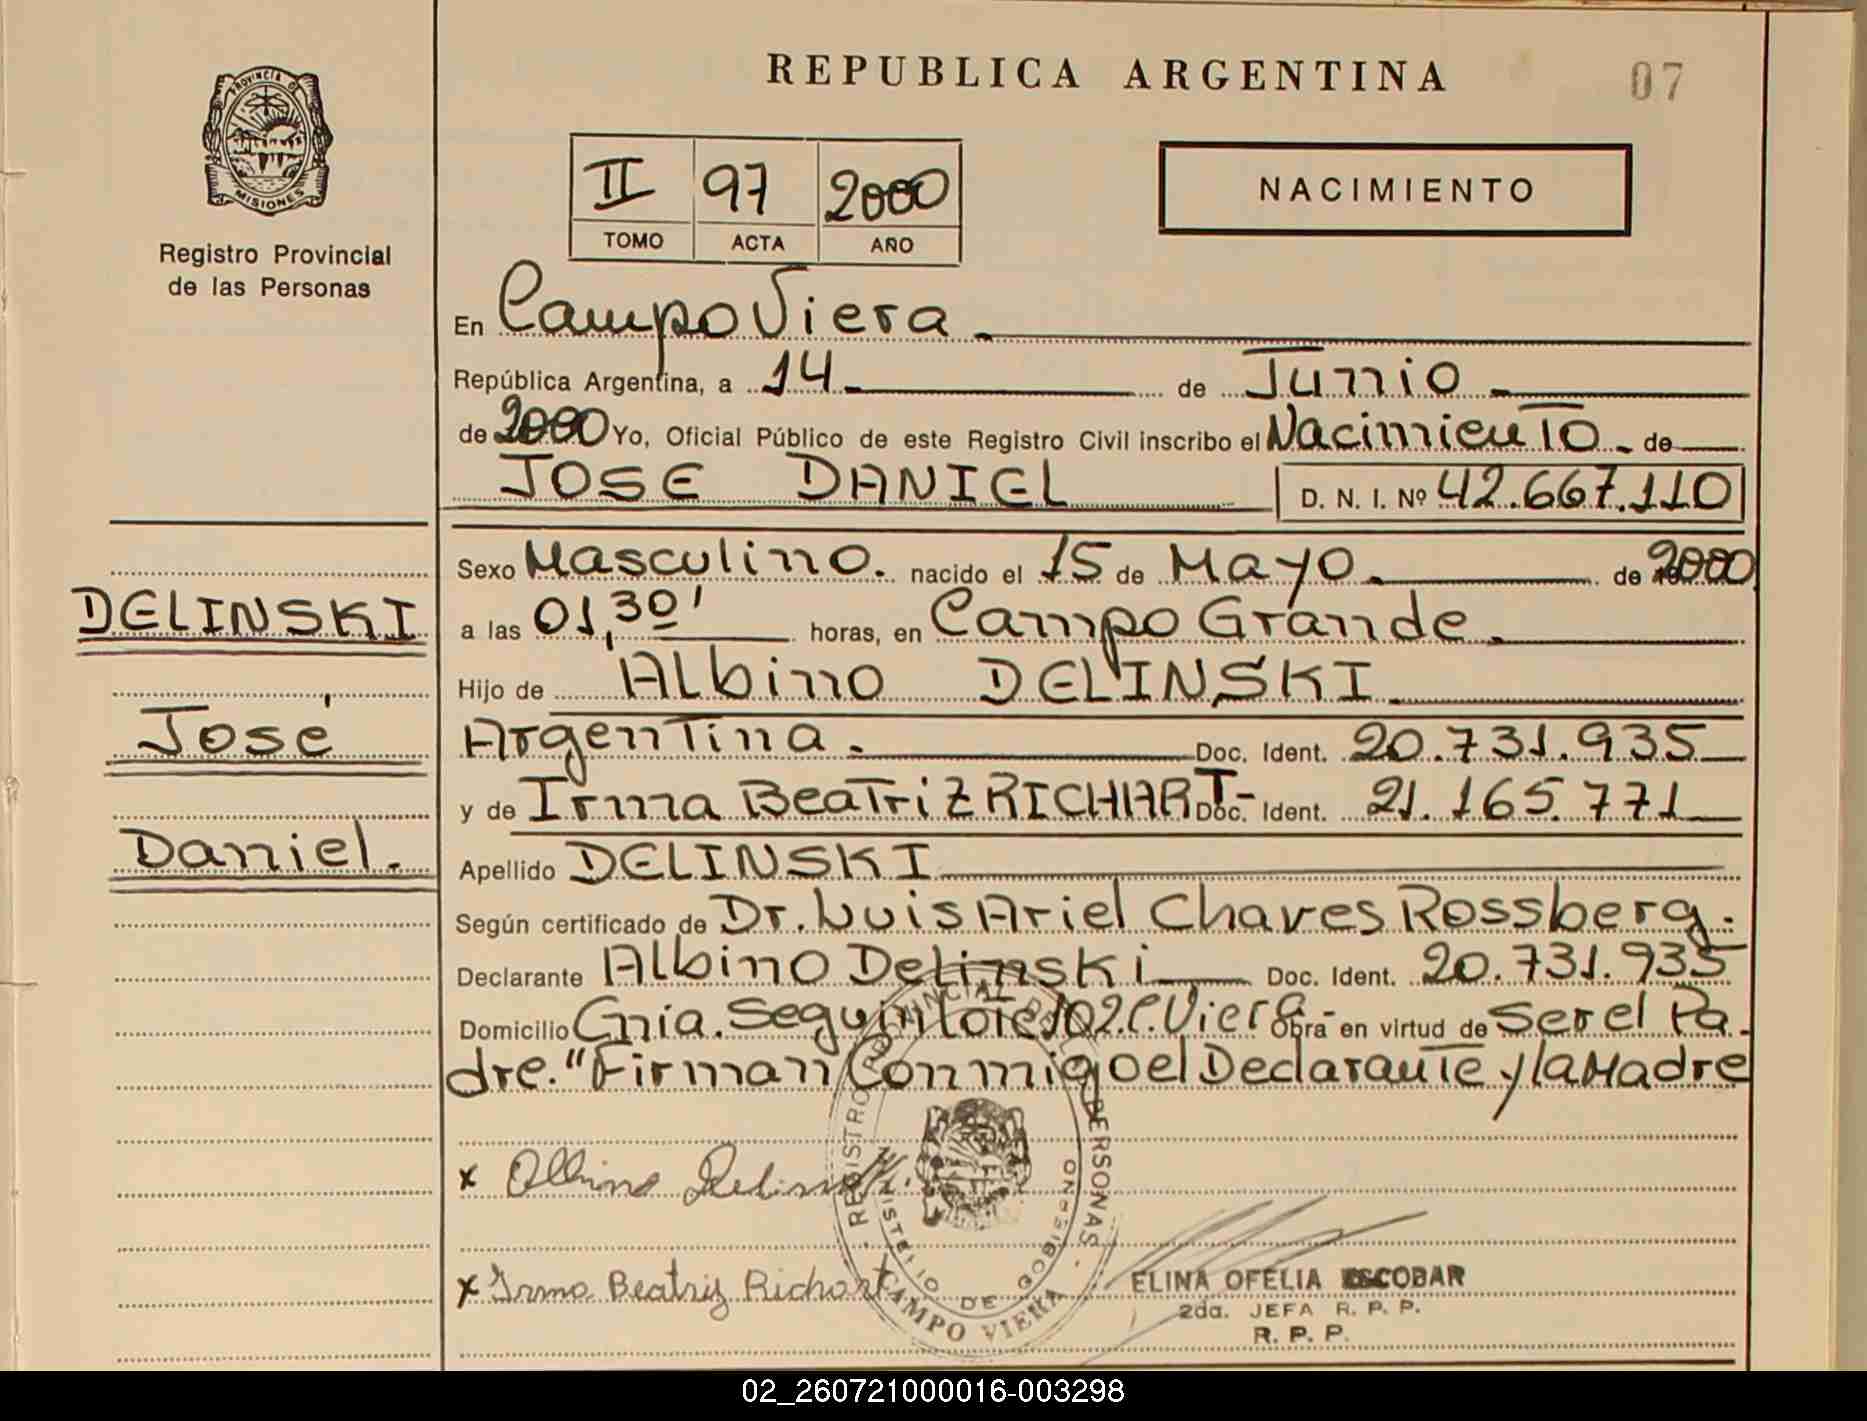 REPUBLICA ARGENTINA
07
PROVINCIA D
MISIONES
Registro Provincial
de las Personas
II 97 2000
TOMO ACTA AÑO
NACIMIENTO
En Campo Viera
República Argentina, a 14 de Junio
de 2000 Yo, Oficial Público de este Registro Civil inscribo el Nacimiento de
JOSE DANIEL D. N. I. Nº 42.667.110
DELINSKI
José
Daniel.
Sexo Masculino. nacido el 15 de Mayo de 2000
a las 01,30' horas, en Campo Grande
Hijo de Albino DELINSKI
Argentina. Doc. Ident. 20.731.935
y de Irma Beatriz RICHART- Doc. Ident. 21.165.771
Apellido DELINSKI
Según certificado de Dr. Luis Ariel Chaves Rossberg.
Declarante Albino Delinski Doc. Ident. 20.731.935
Domicilio Cnia. Seguin lote 102 C. Viera- Obra en virtud de Ser el Pa-
dre. "Firman Conmigo el Declarante y la Madre
x Albino Delinski
x Irma Beatriz Richart
REGISTRO PROVINCIAL DE LAS PERSONAS
MINISTERIO DE GOBIERNO
CAMPO VIERA
ELINA OFELIA ESCOBAR
2da. JEFA R. P. P.
R. P. P.
02_260721000016-003298